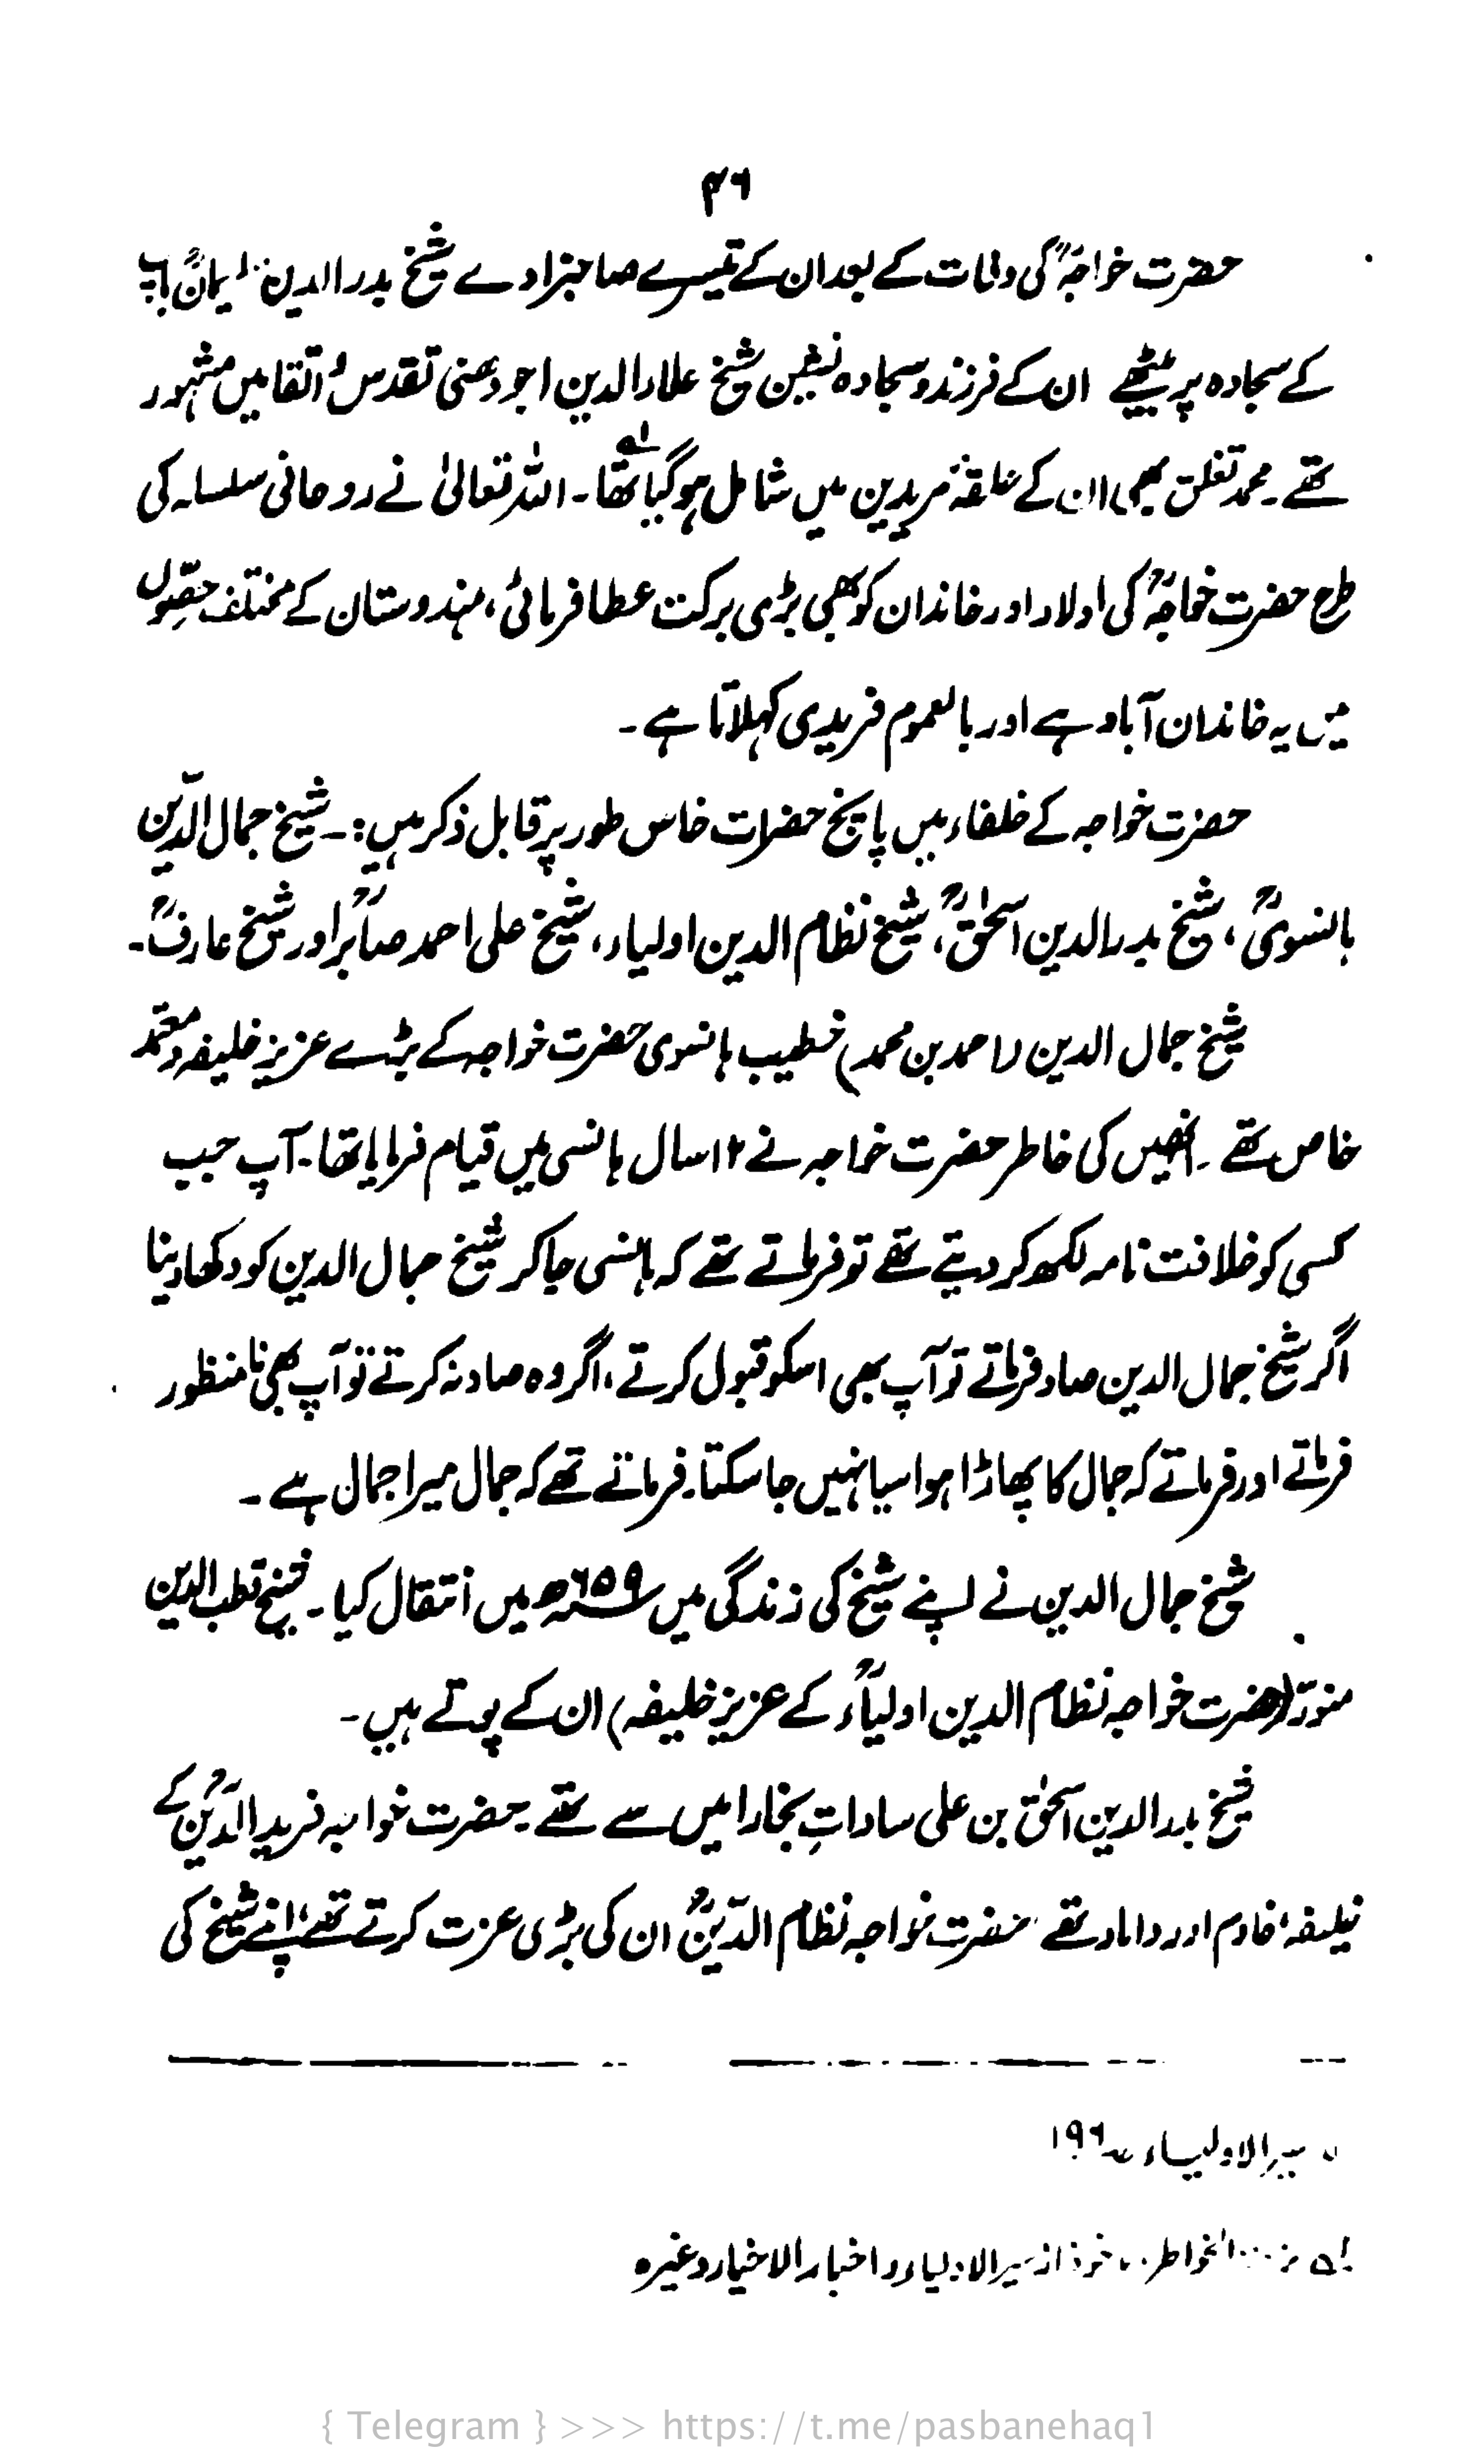 ۴۶
حضرت خواجہؒ کی وفات کے بعد ان کے تیسرے صاحبزادے شیخ بدرالدین سلیمانؒ باپ
کے سجادہ پر بیٹھے ان کے فرزند و سجادہ نشین شیخ علاء الدین اجودھنی تقدس و اتقا میں مشہور
تھے۔ محمد تغلق بھی ان کے حلقۂ مریدین میں شامل ہو گیا تھا۔ اللہ تعالیٰ نے روحانی سلسلہ کی
طرح حضرت خواجہؒ کی اولاد اور خاندان کو بھی بڑی برکت عطا فرمائی، ہندوستان کے مختلف حصّوں
میں یہ خاندان آباد ہے اور بالعموم فریدی کہلاتا ہے۔
حضرت خواجہ کے خلفاء میں پانچ حضرات خاص طور پر قابل ذکر ہیں:۔ شیخ جمال الدّین
ہانسویؒ، شیخ بدرالدین اسحٰقؒ، شیخ نظام الدین اولیاء، شیخ علی احمد صابرؒ اور شیخ عارفؒ۔
شیخ جمال الدین (احمد بن محمد) خطیب ہانسوی حضرت خواجہ کے بڑے عزیز خلیفہ و معتمد
خاص تھے۔ انھیں کی خاطر حضرت خواجہ نے ۱۲ سال ہانسی میں قیام فرمایا تھا۔ آپ جب
کسی کو خلافت نامہ لکھ کر دیتے تھے تو فرماتے تھے کہ ہانسی جاکر شیخ جمال الدین کو دکھا دینا
اگر شیخ جمال الدین صاد فرماتے تو آپ بھی اسکو قبول کرتے، اگر وہ صاد نہ کرتے تو آپ بھی نامنظور
فرماتے اور فرماتے کہ جمال کا پھاڑا ہوا سیا نہیں جا سکتا۔ فرماتے تھے کہ جمال میرا جمال ہے۔
شیخ جمال الدین نے اپنے شیخ کی زندگی میں ۶۵۹ھ میں انتقال کیا۔ شیخ قطب الدین
منورؒ (حضرت خواجہ نظام الدین اولیاءؒ کے عزیز خلیفہ) ان کے پوتے ہیں۔
شیخ بدرالدین اسحٰق بن علی ساداتِ بخارا میں سے تھے۔ حضرت خواجہ فرید الدّینؒ کے
خلیفہ، خادم اور داماد تھے حضرت خواجہ نظام الدّینؒ ان کی بڑی عزت کرتے تھے، اپنے شیخ کی
سیرالاولیاء ص۱۹۶
الخواطر ماخوذ از سیرالاولیاء و اخبار الاخیار وغیرہ
{ Telegram } >>> https://t.me/pasbanehaq1